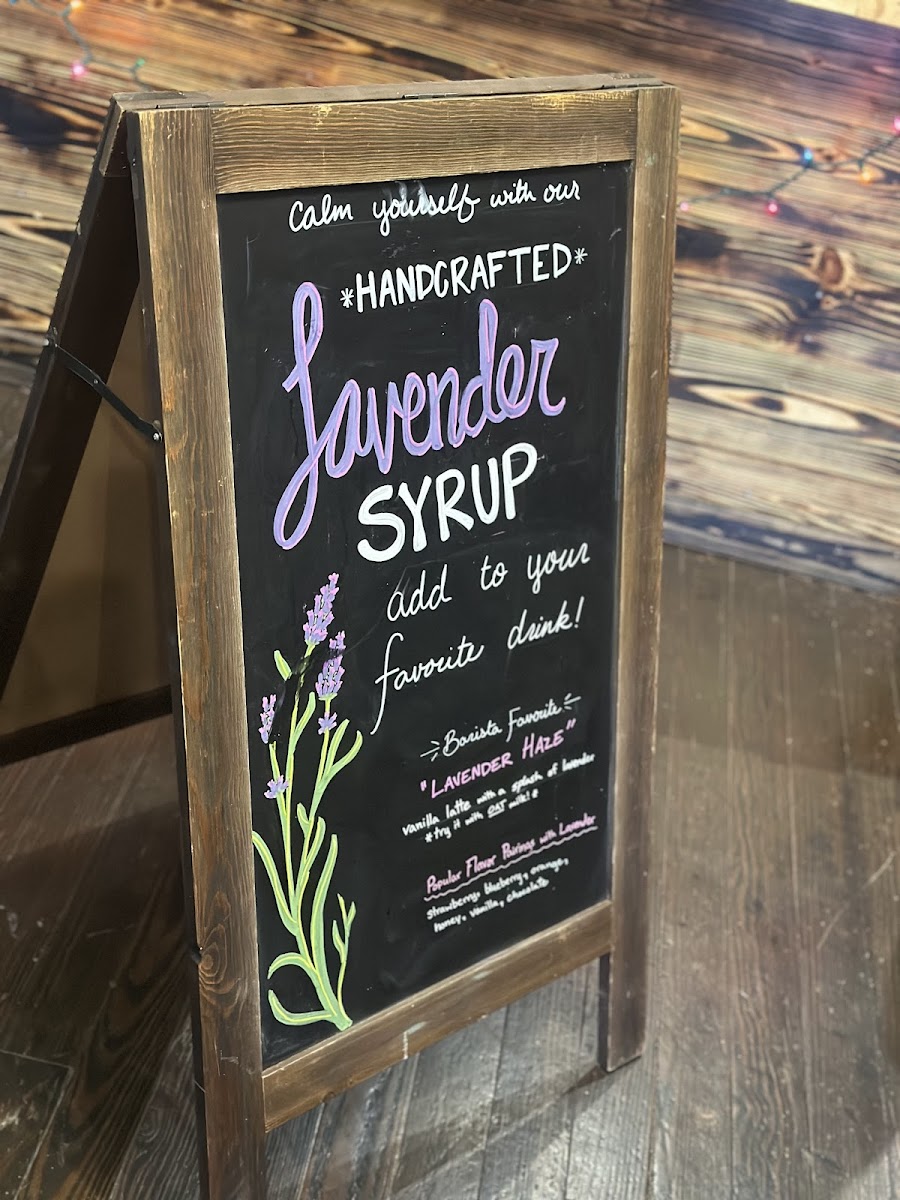 Calm yourself with our
*HANDCRAFTED*
Lavender
SYRUP
add to your
favorite drink!
Barista Favorite
"LAVENDER HAZE"
vanilla latte with a splash of lavender
*try it with OAT milk!*
Popular Flavor Pairings with Lavender
strawberry, blueberry, orange,
honey, vanilla, chocolate